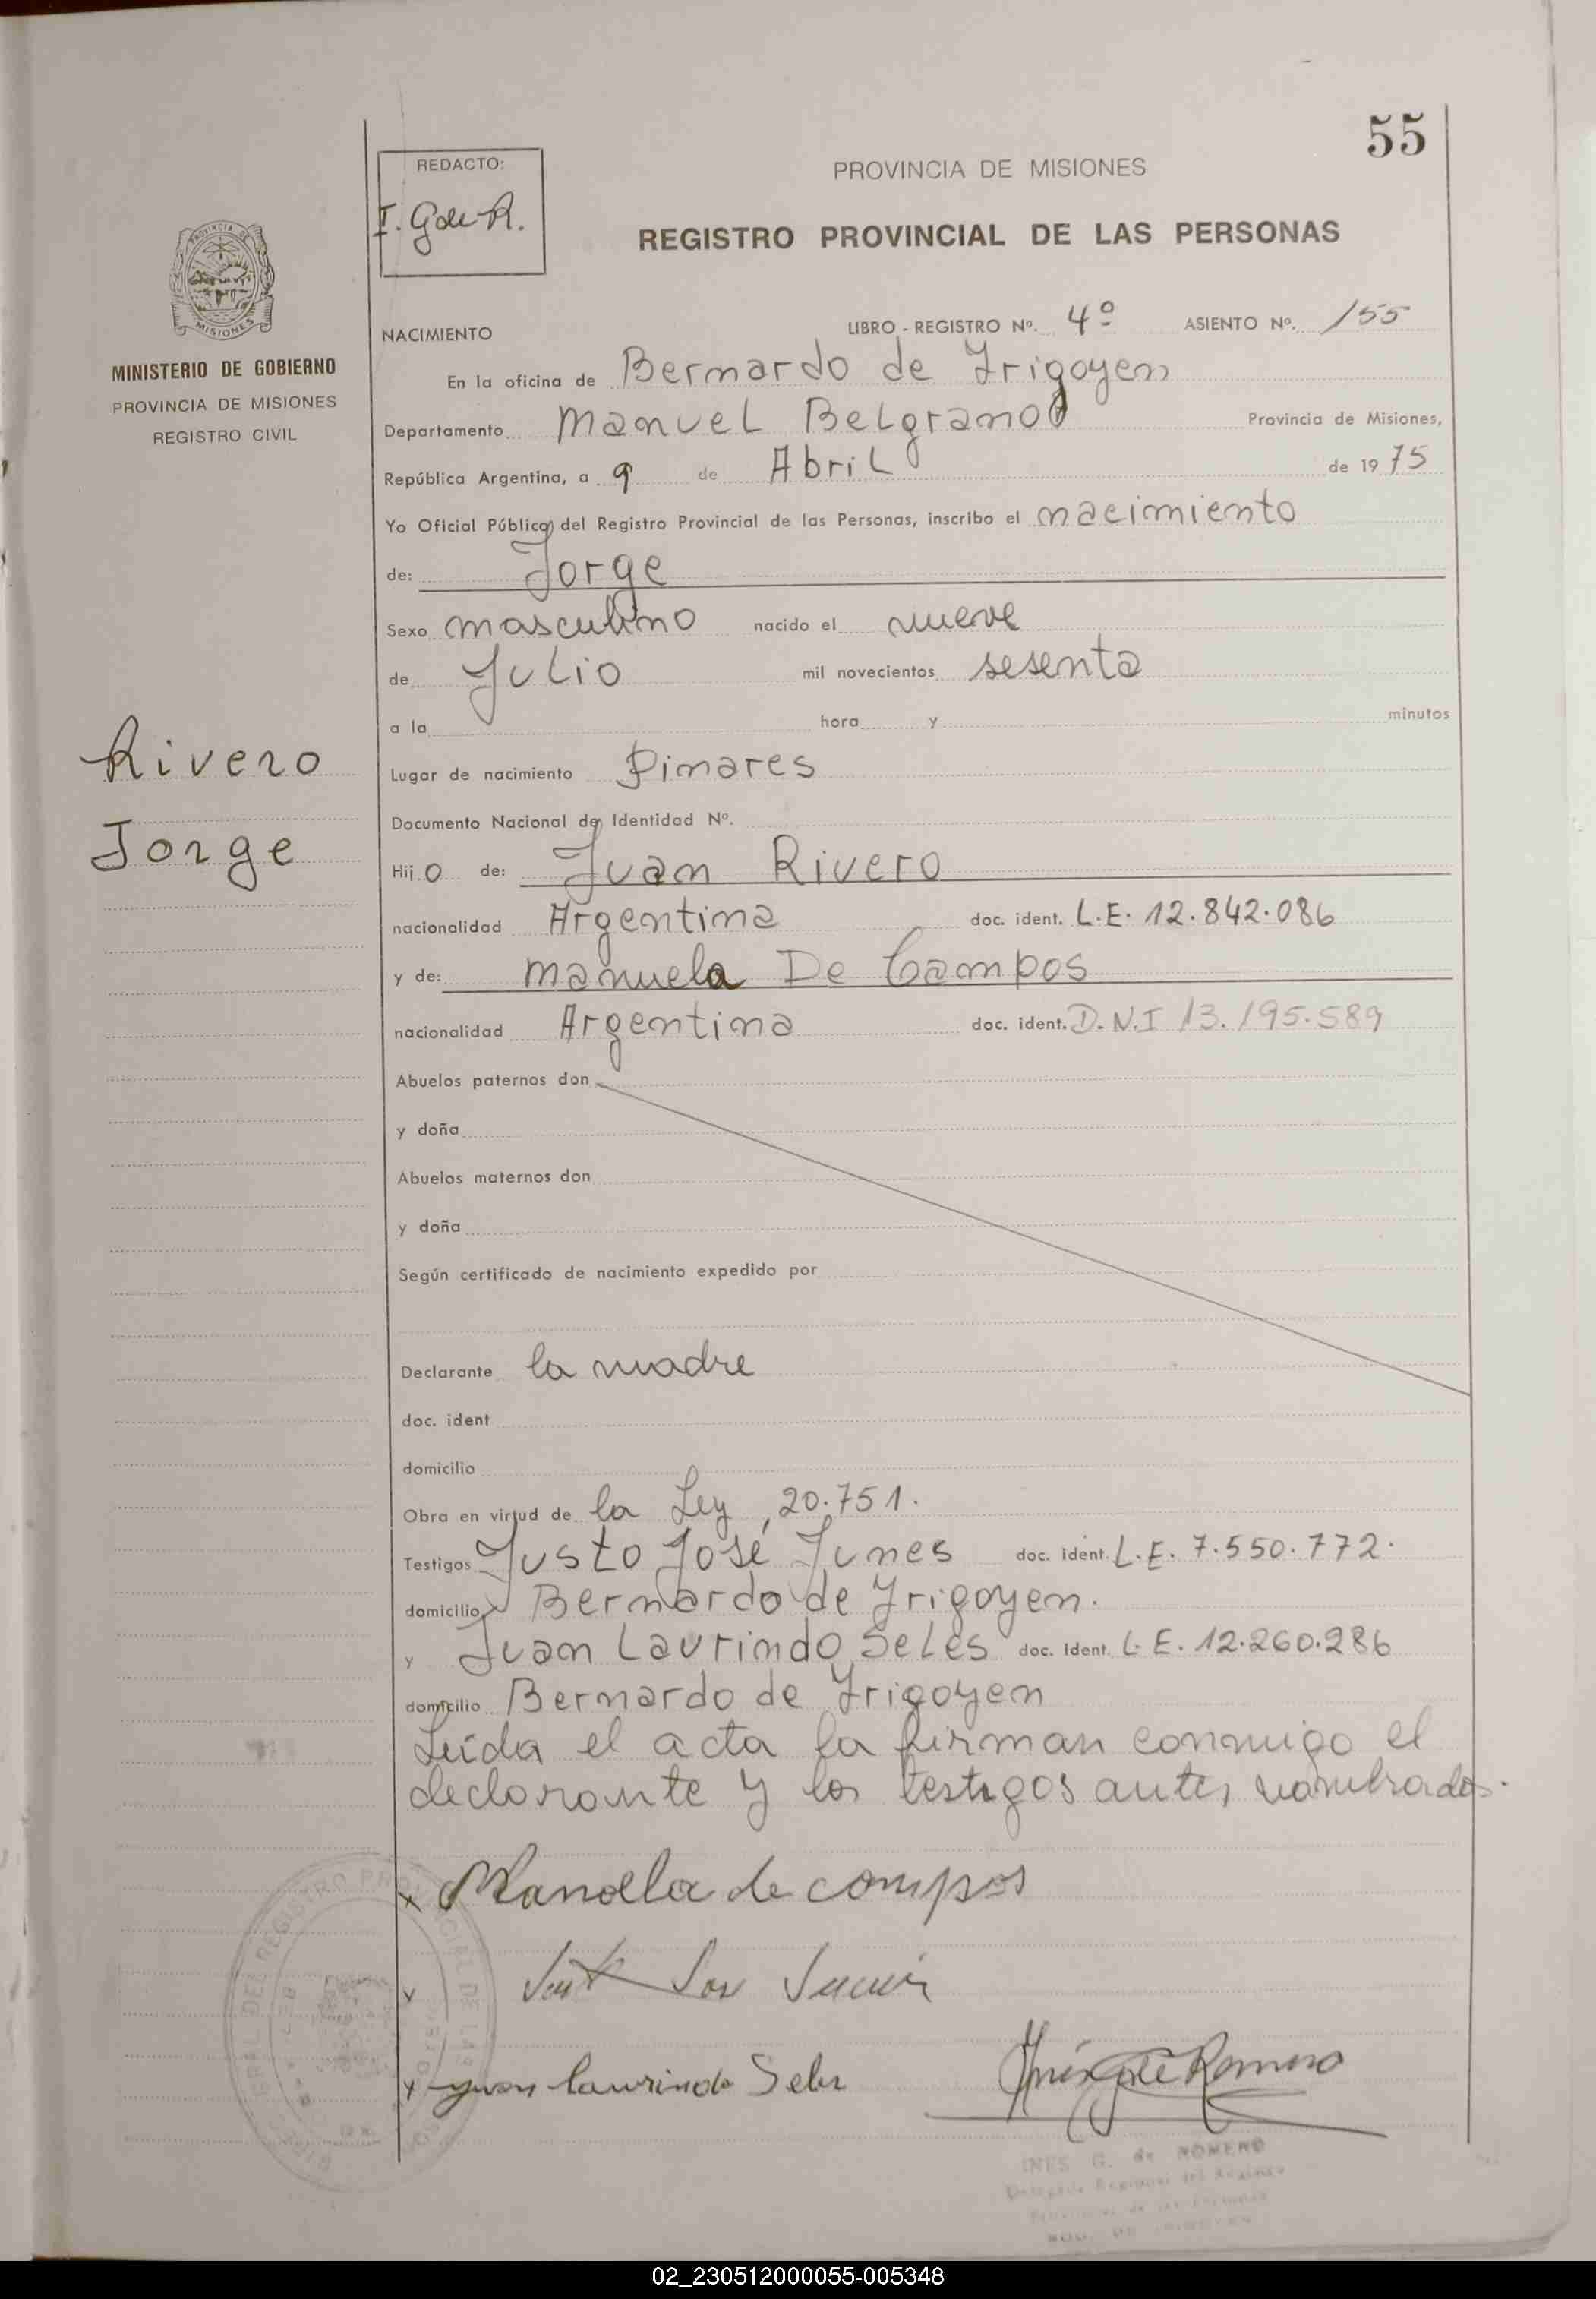 55
REDACTO:
I. G de R.
PROVINCIA DE MISIONES
REGISTRO PROVINCIAL DE LAS PERSONAS
MISIONES
MINISTERIO DE GOBIERNO
PROVINCIA DE MISIONES
REGISTRO CIVIL
NACIMIENTO LIBRO - REGISTRO Nº. 4º ASIENTO Nº. 155
En la oficina de Bernardo de Yrigoyen
Departamento Manuel Belgrano Provincia de Misiones,
República Argentina, a 9 de Abril de 1975
Yo Oficial Público del Registro Provincial de las Personas, inscribo el nacimiento
de: Jorge
Sexo masculino nacido el nueve
de Julio mil novecientos sesenta
a la hora y minutos
Rivero
Lugar de nacimiento Pinares
Documento Nacional de Identidad Nº.
Jorge
Hijo de: Juan Rivero
nacionalidad Argentina doc. ident. L.E. 12.842.086
y de: Manuela De Campos
nacionalidad Argentina doc. ident. D.N.I 13.195.589
Abuelos paternos don
y doña
Abuelos maternos don
y doña
Según certificado de nacimiento expedido por
Declarante la madre
doc. ident
domicilio
Obra en virtud de la Ley, 20.751.
Testigos Justo José Junes doc. ident. L.E. 7.550.772.
domicilio Bernardo de Yrigoyen.
y Juan Laurindo Seles doc. Ident. L.E. 12.260.286
domicilio Bernardo de Yrigoyen
Leida el acta la firman conmigo el
declarante y los testigos antes nombrados.
x Manoela de campos
x
x Juan laurindo Seles
INES G. de ROMERO
02_230512000055-005348